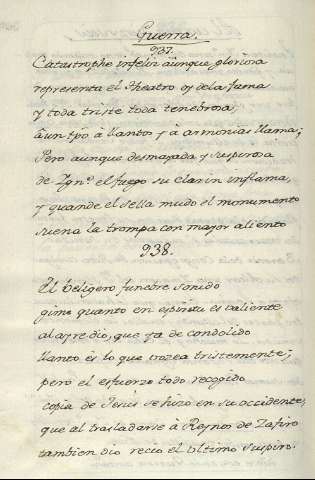 Guerra.
937.
Catastrophe infeliz aûnque gloriosa
representa el Theatro oy de la fama
y toda triste toda tenebrosa,
âun tpo â llantos y â armonias llama;
Pero aunque desmayada y suspirosa
de Ygn.º el fuego su clarin inflama,
y quando el sella mudo el monumento
suena la trompa con mayor aliento
938.
Al beligero funebre sonido
gime quanto en espiritu es valiente
al asedio, que ya de condolido
llanto es lo que vozea tristemente;
pero el esfuerzo todo recogido
copia de Jesus se hizo en su occidente,
que al trasladarse â Reynos de Zafiro
tambien dio recio el ultimo suspiro.